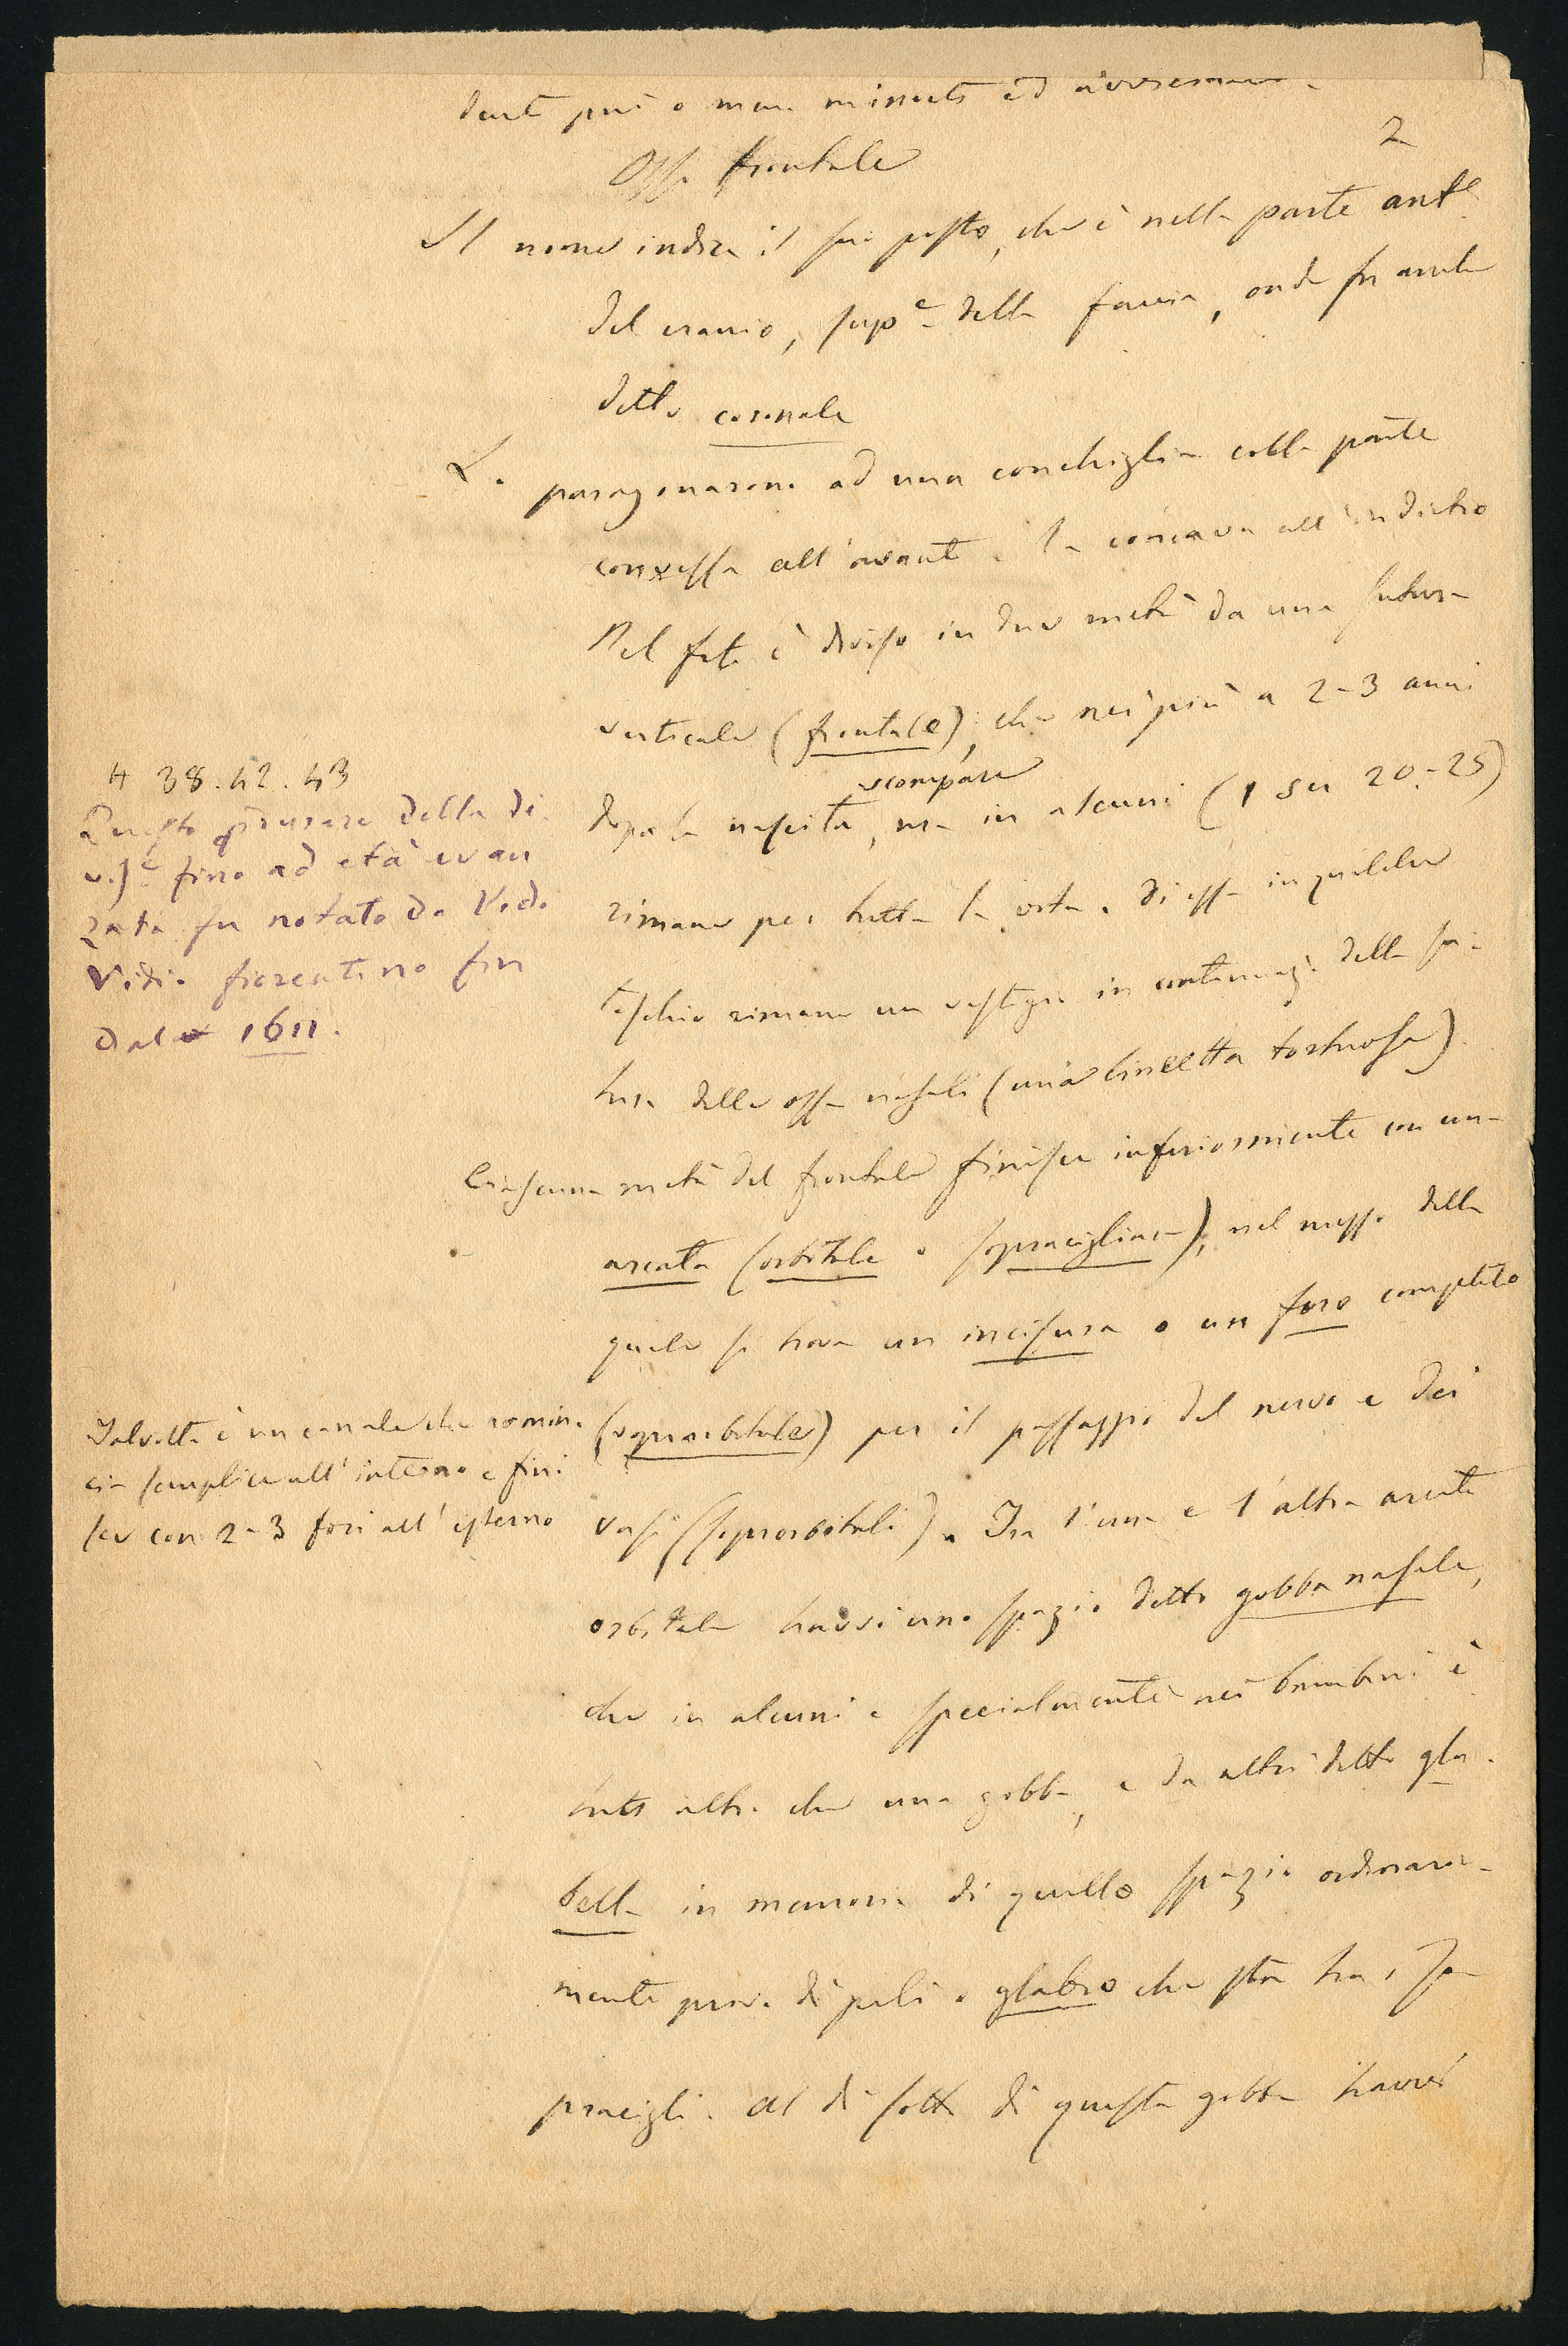 2
Osso frontale
Il nome indica il suo posto, che è nella parte ant.e
del cranio, sup.e della faccia, onde fu anche
detto coronale
Lo paragonarono ad una conchiglia colla parte
convessa all'avanti, la concava all'indietro
Nel feto è diviso in due metà da una sutura
verticale (frontale), che nei più a 2-3 anni
scompare
dopo la nascita, ma in alcuni (1 su 20-25)
rimane per tutta la vita. Di essa in qualche
teschio rimane un vestigio in continuaz.e della su-
tura delle ossa nasali (una lineetta tortuosa).
Ciascuna metà del frontale finisce inferiormente con una
arcata (orbitale o sopracigliare), nel mezzo della
quale si trova un incisura o un foro completo
(sopraorbitale) per il passaggio del nervo e dei
vasi (sopraorbitali). Tra l'una e l'altra arcata
orbitale travasi uno spazio detto gobba nasale,
che in alcuni e specialmente nei bambini è
tutt'altro che una gobba, e da altri detto gla-
bella in memoria di quello spazio ordinaria-
mente privo di peli o glabro che sta tra i so-
pracigli. Al di sotto di questa gobba travasi
H 38.42.43
Questo perdurare della di-
vis.e fino ad età avan
zata fu notato da Vido
Vidio fiorentino fin
dal 1611.
Talvolta è un canale che comin-
cia semplice all'interno e fini
sce con 2-3 fori all'esterno